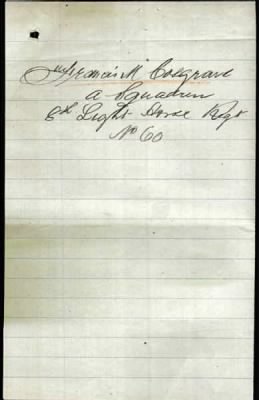 Francis M Cosgrave
A Squadron
6th Light Horse Regt
No 60